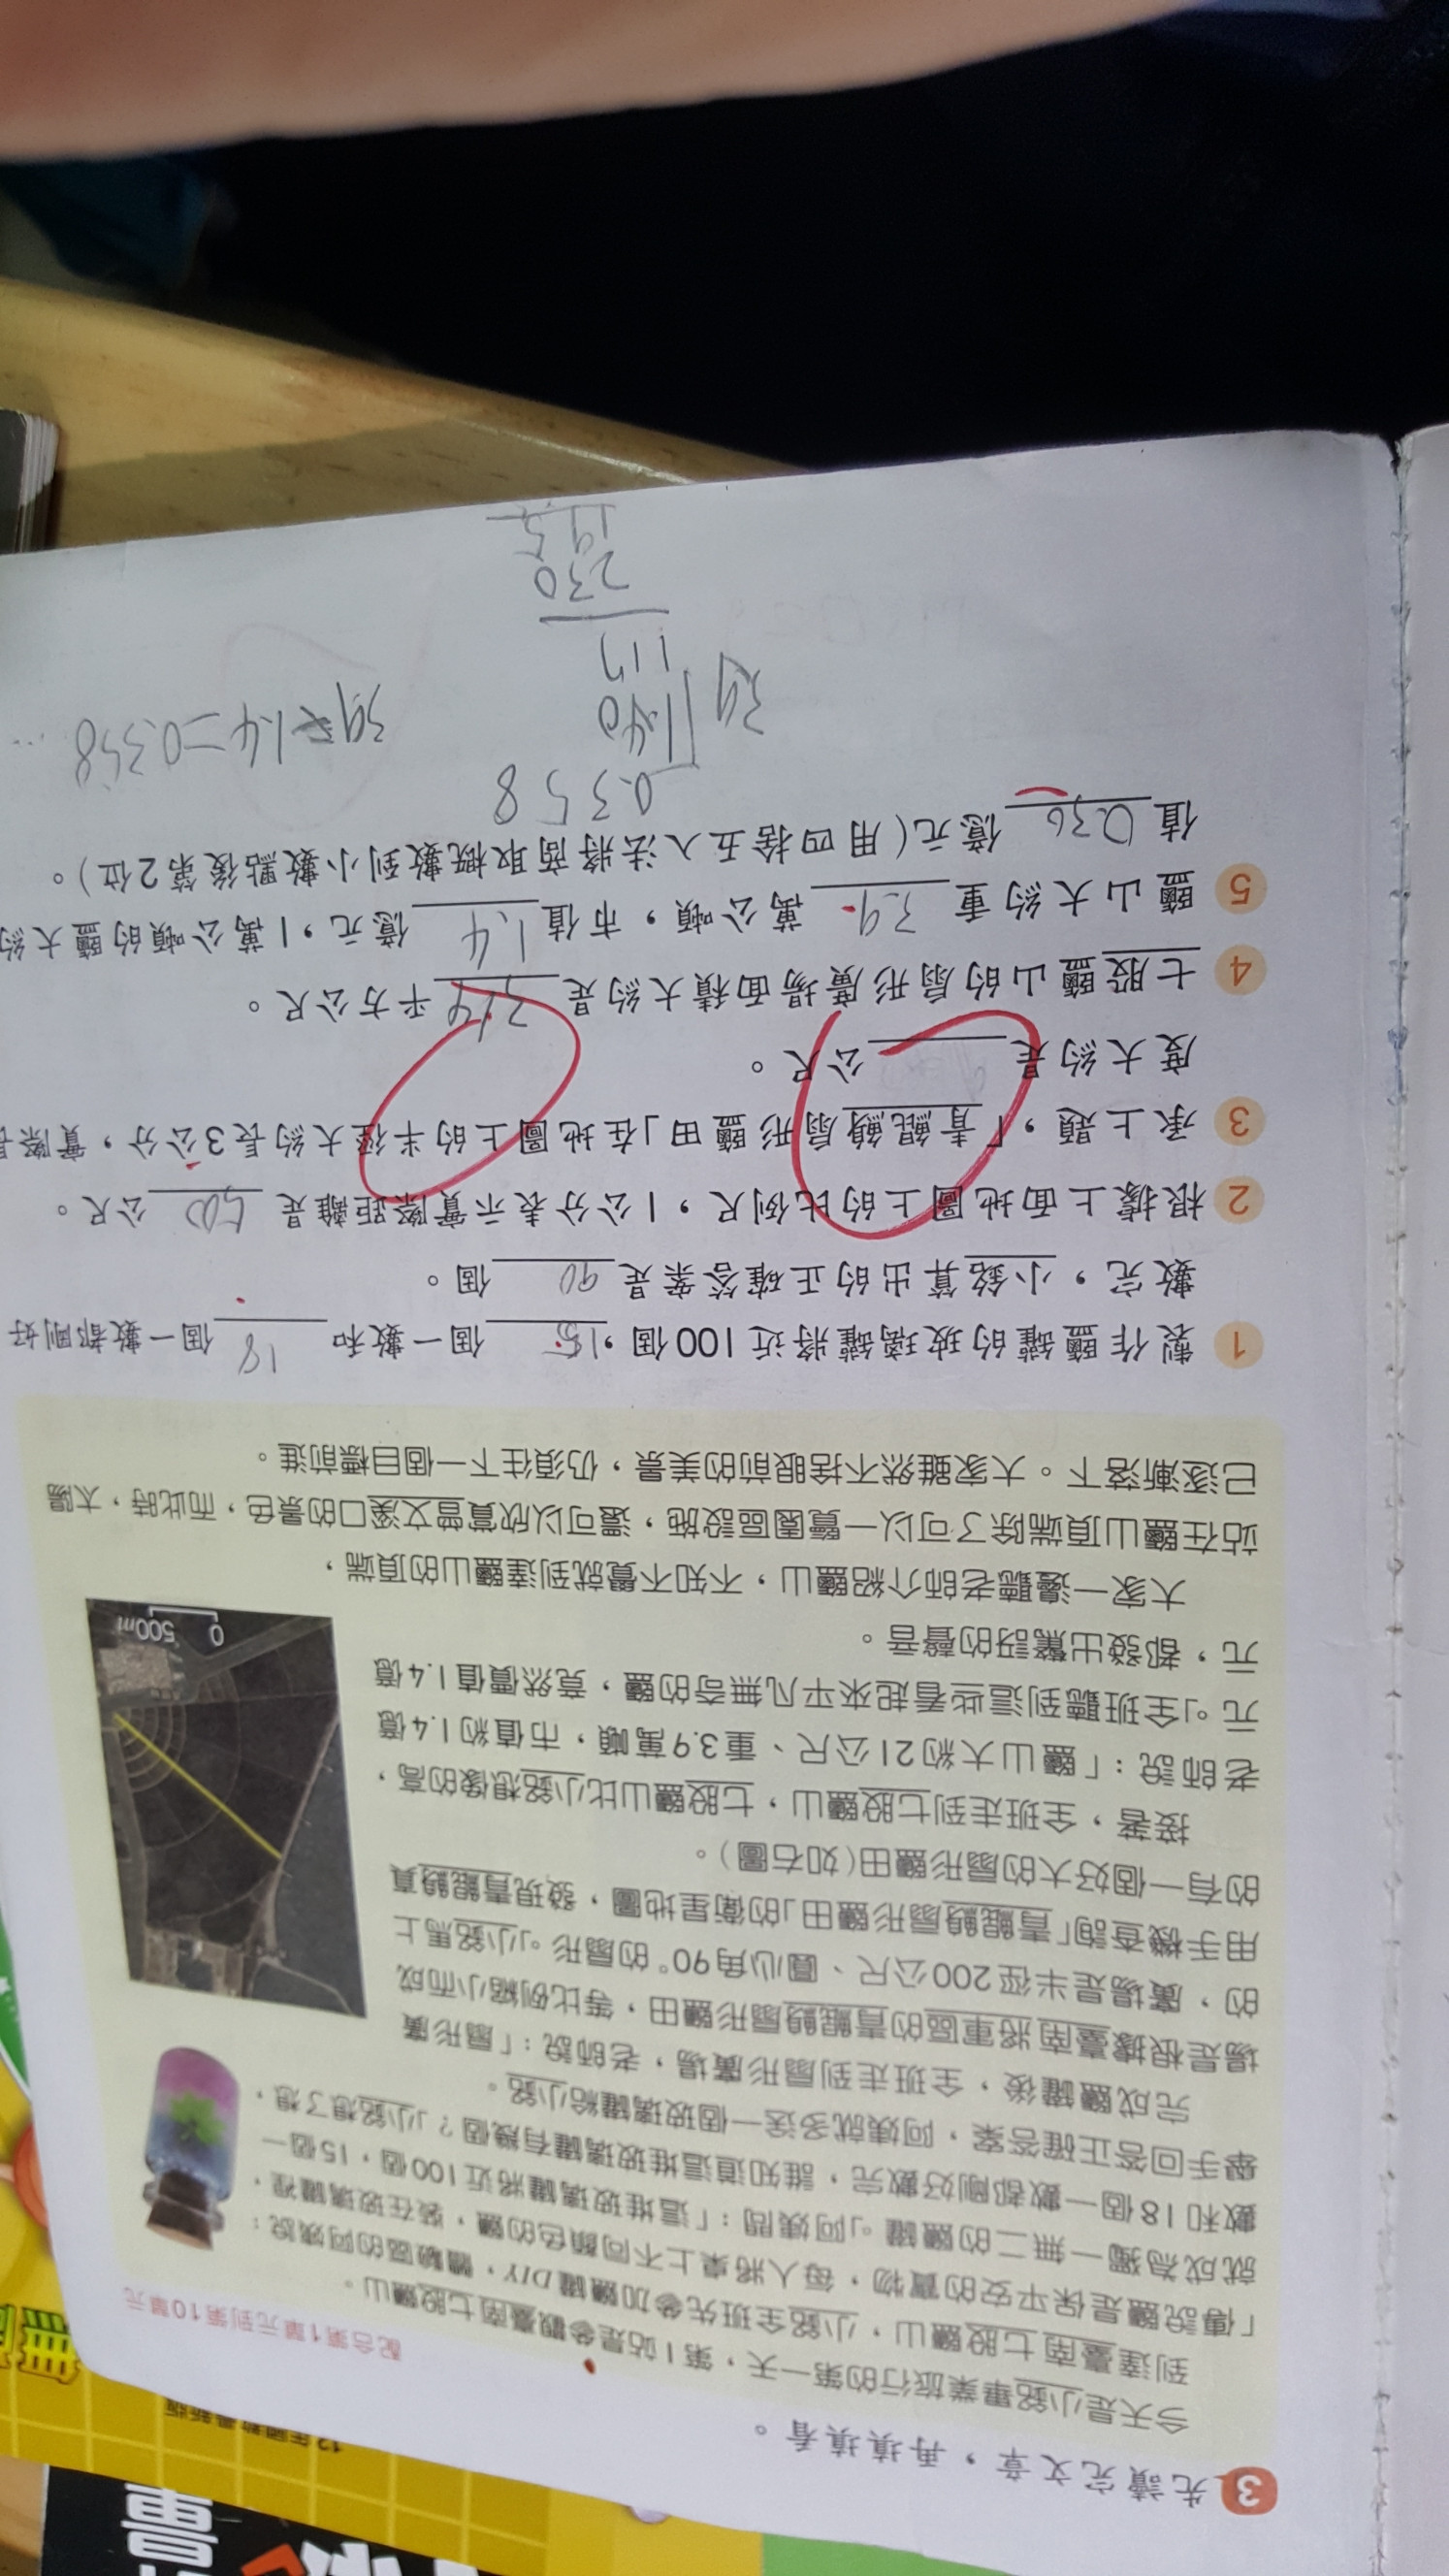 3 先讀完文章，再填填看。
配合第1單元到第10單元
今天是小銘畢業旅行的第一天，第1站是參觀臺南七股鹽山。
到達臺南七股鹽山，小銘全班先參加鹽罐DIY，體驗區的阿姨說：
「傳說鹽是保平安的寶物，每人將桌上不同顏色的鹽，裝在玻璃罐裡，
就成為獨一無二的鹽罐。」阿姨問：「這堆玻璃罐將近100個，15個一
數和18個一數都剛好數完，誰知道這堆玻璃罐有幾個？」小銘想了想，
舉手回答正確答案，阿姨就多送一個玻璃罐給小銘。
完成鹽罐後，全班走到扇形廣場，老師說：「扇形廣
場是根據臺南將軍區的青鯤鯓扇形鹽田，等比例縮小而成
的，廣場是半徑200公尺、圓心角90°的扇形。」小銘馬上
用手機查詢「青鯤鯓扇形鹽田」的衛星地圖，發現青鯤鯓真
的有一個好大的扇形鹽田(如右圖)。
接著，全班走到七股鹽山，七股鹽山比小銘想像的高，
老師說：「鹽山大約21公尺、重3.9萬噸，市值約1.4億
元。」全班聽到這些看起來平凡無奇的鹽，竟然價值1.4億
元，都發出驚訝的聲音。
0 500m
大家一邊聽老師介紹鹽山，不知不覺就到達鹽山的頂端，
站在鹽山頂端除了可以一覽園區設施，還可以欣賞曾文溪口的景色，而此時，太陽
已逐漸落下。大家雖然不捨眼前的美景，仍須往下一個目標前進。
1 製作鹽罐的玻璃罐將近100個，15個一數和18個一數都剛好
數完，小銘算出的正確答案是90個。
2 根據上面地圖上的比例尺，1公分表示實際距離是500公尺。
3 承上題，「青鯤鯓扇形鹽田」在地圖上的半徑大約長3公分，實際長
度大約是公尺。
4 七股鹽山的扇形廣場面積大約是314平方公尺。
5 鹽山大約重3.9萬公噸，市值1.4億元，1萬公噸的鹽大約
值0.36億元(用四捨五入法將商取概數到小數點後第2位)。
0.358
39 1.40
117
230
195